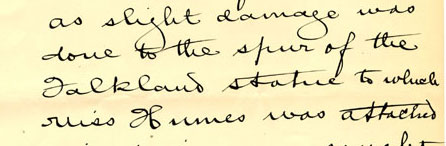 as slight damage was
done to the spur of the
Falkland statue to which
Miss Humes was attached